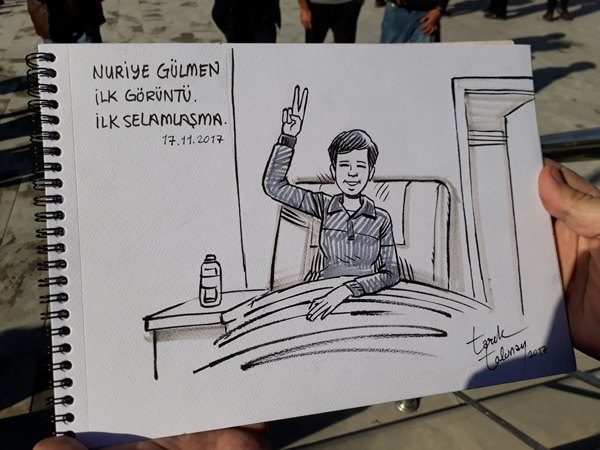 NURİYE GÜLMEN
İLK GÖRÜNTÜ.
İLK SELAMLAŞMA.
17.11.2017
tarık
tolunay
2017